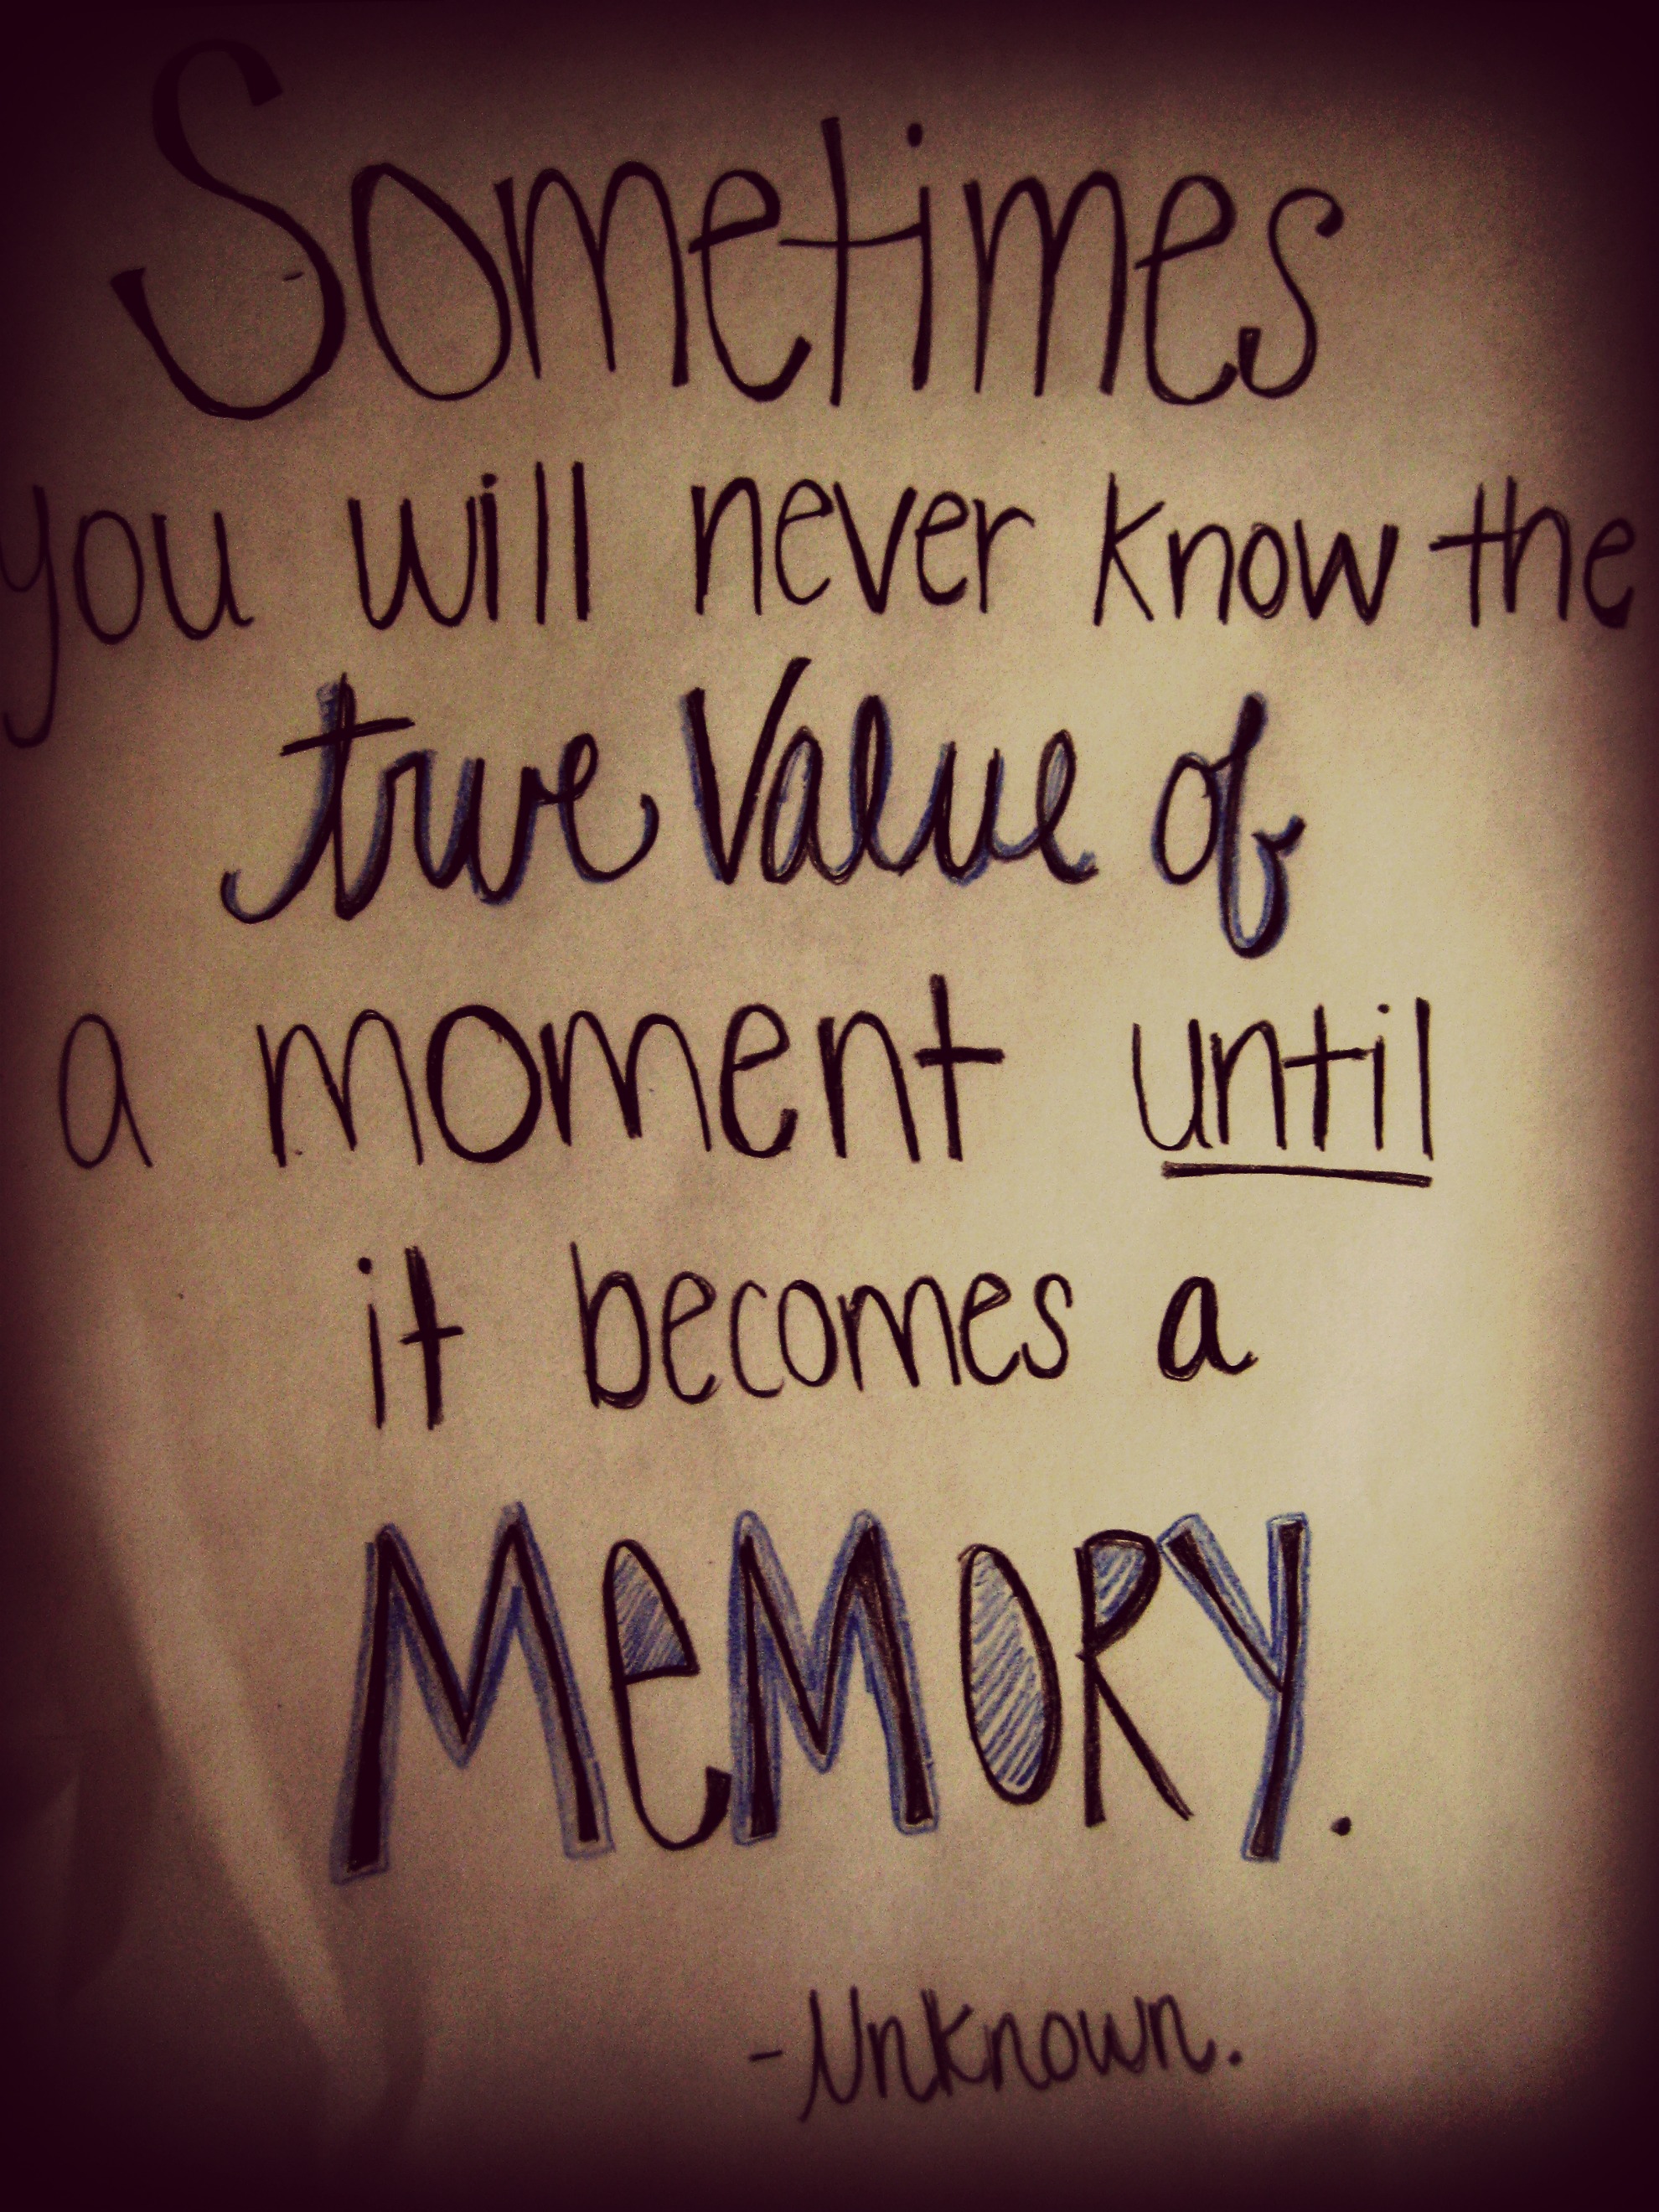 Sometimes
you will never know the
true Value of
a moment until
it becomes a
MeMORY.
-Unknown.